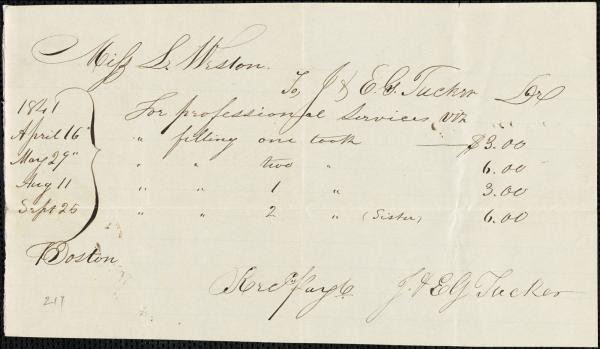 Miss L. Weston.
To J & E. G. Tucker Dr
1841 For professional services viz
April 16th " filling one tooth $3.00
May 29" " " two " 6.00
Aug 11 " " 1 " 3.00
Sept 25 " " 2 " (Sister) 6.00
Boston
Rec'd Payt J. & E G Tucker
217